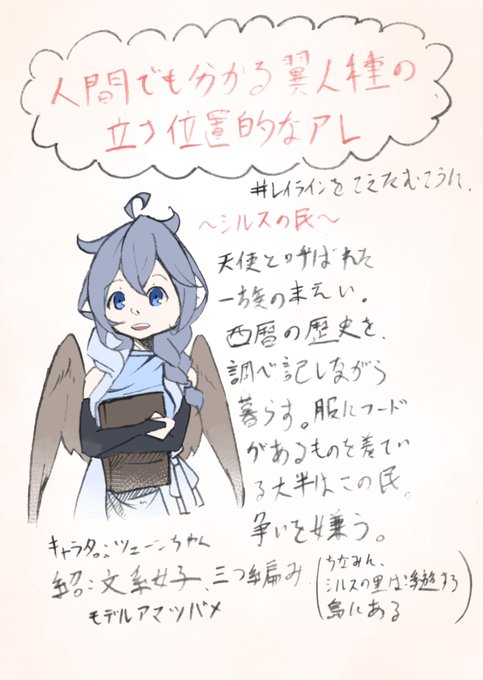 人間でも分かる翼人種の
立ち位置的なアレ
#レイラインをこえたむこうに、
～シルスの民～
天使と呼ばれた
一族の末えい。
西暦の歴史を、
調べ記しながら
暮らす。服にフード
があるものを着てい
る大半はこの民。
争いを嫌う。
キャラ名:ツェーンちゃん
紹:文系女子、三つ編み
モデルアマツバメ
(ちなみに、
シルスの里は浮遊する
島にある)